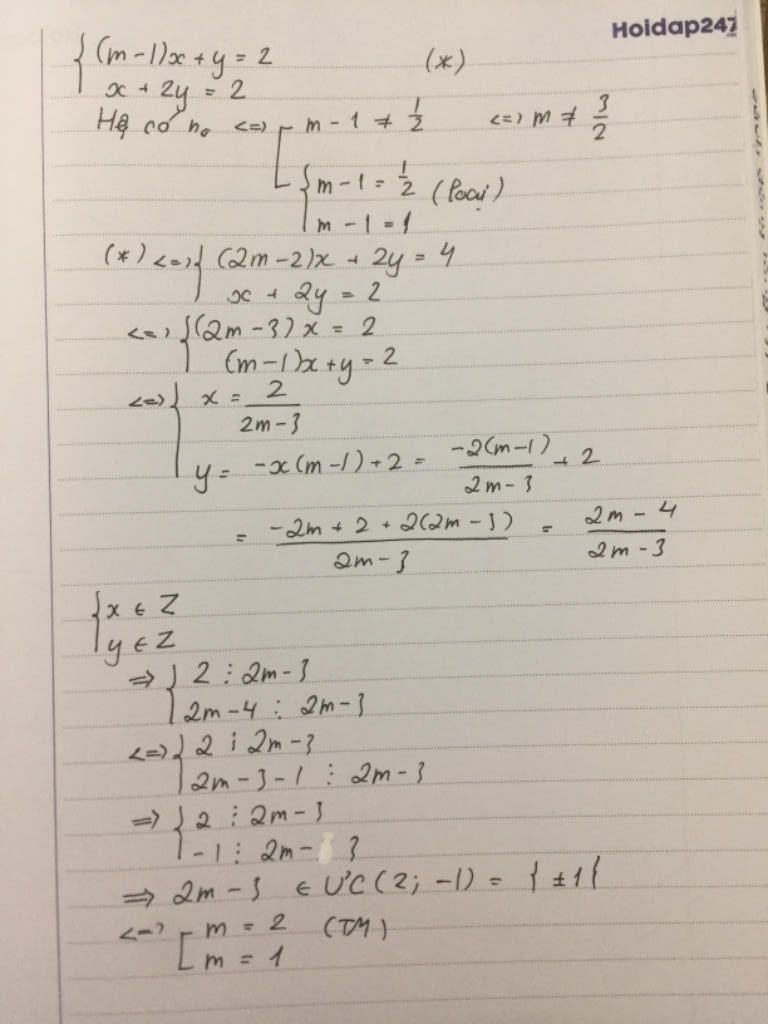 Hoidap247
{(m-1)x + y = 2 (*)
x + 2y = 2
Hệ có no <=> [ m - 1 ≠ 1/2 <=> m ≠ 3/2
{ m - 1 = 1/2 (loại)
m - 1 = 1
(*) <=> { (2m-2)x + 2y = 4
x + 2y = 2
<=> { (2m-3)x = 2
(m-1)x + y = 2
<=> { x = 2/(2m-3)
y = -x(m-1)+2 = -2(m-1)/(2m-3) + 2
= (-2m + 2 + 2(2m-3))/(2m-3) = (2m-4)/(2m-3)
{ x ∈ Z
y ∈ Z
=> { 2 ⋮ 2m-3
2m-4 ⋮ 2m-3
<=> { 2 ⋮ 2m-3
2m-3-1 ⋮ 2m-3
=> { 2 ⋮ 2m-3
-1 ⋮ 2m- 3
=> 2m-3 ∈ ƯC(2; -1) = {±1{
<=> [ m = 2 (TM)
m = 1